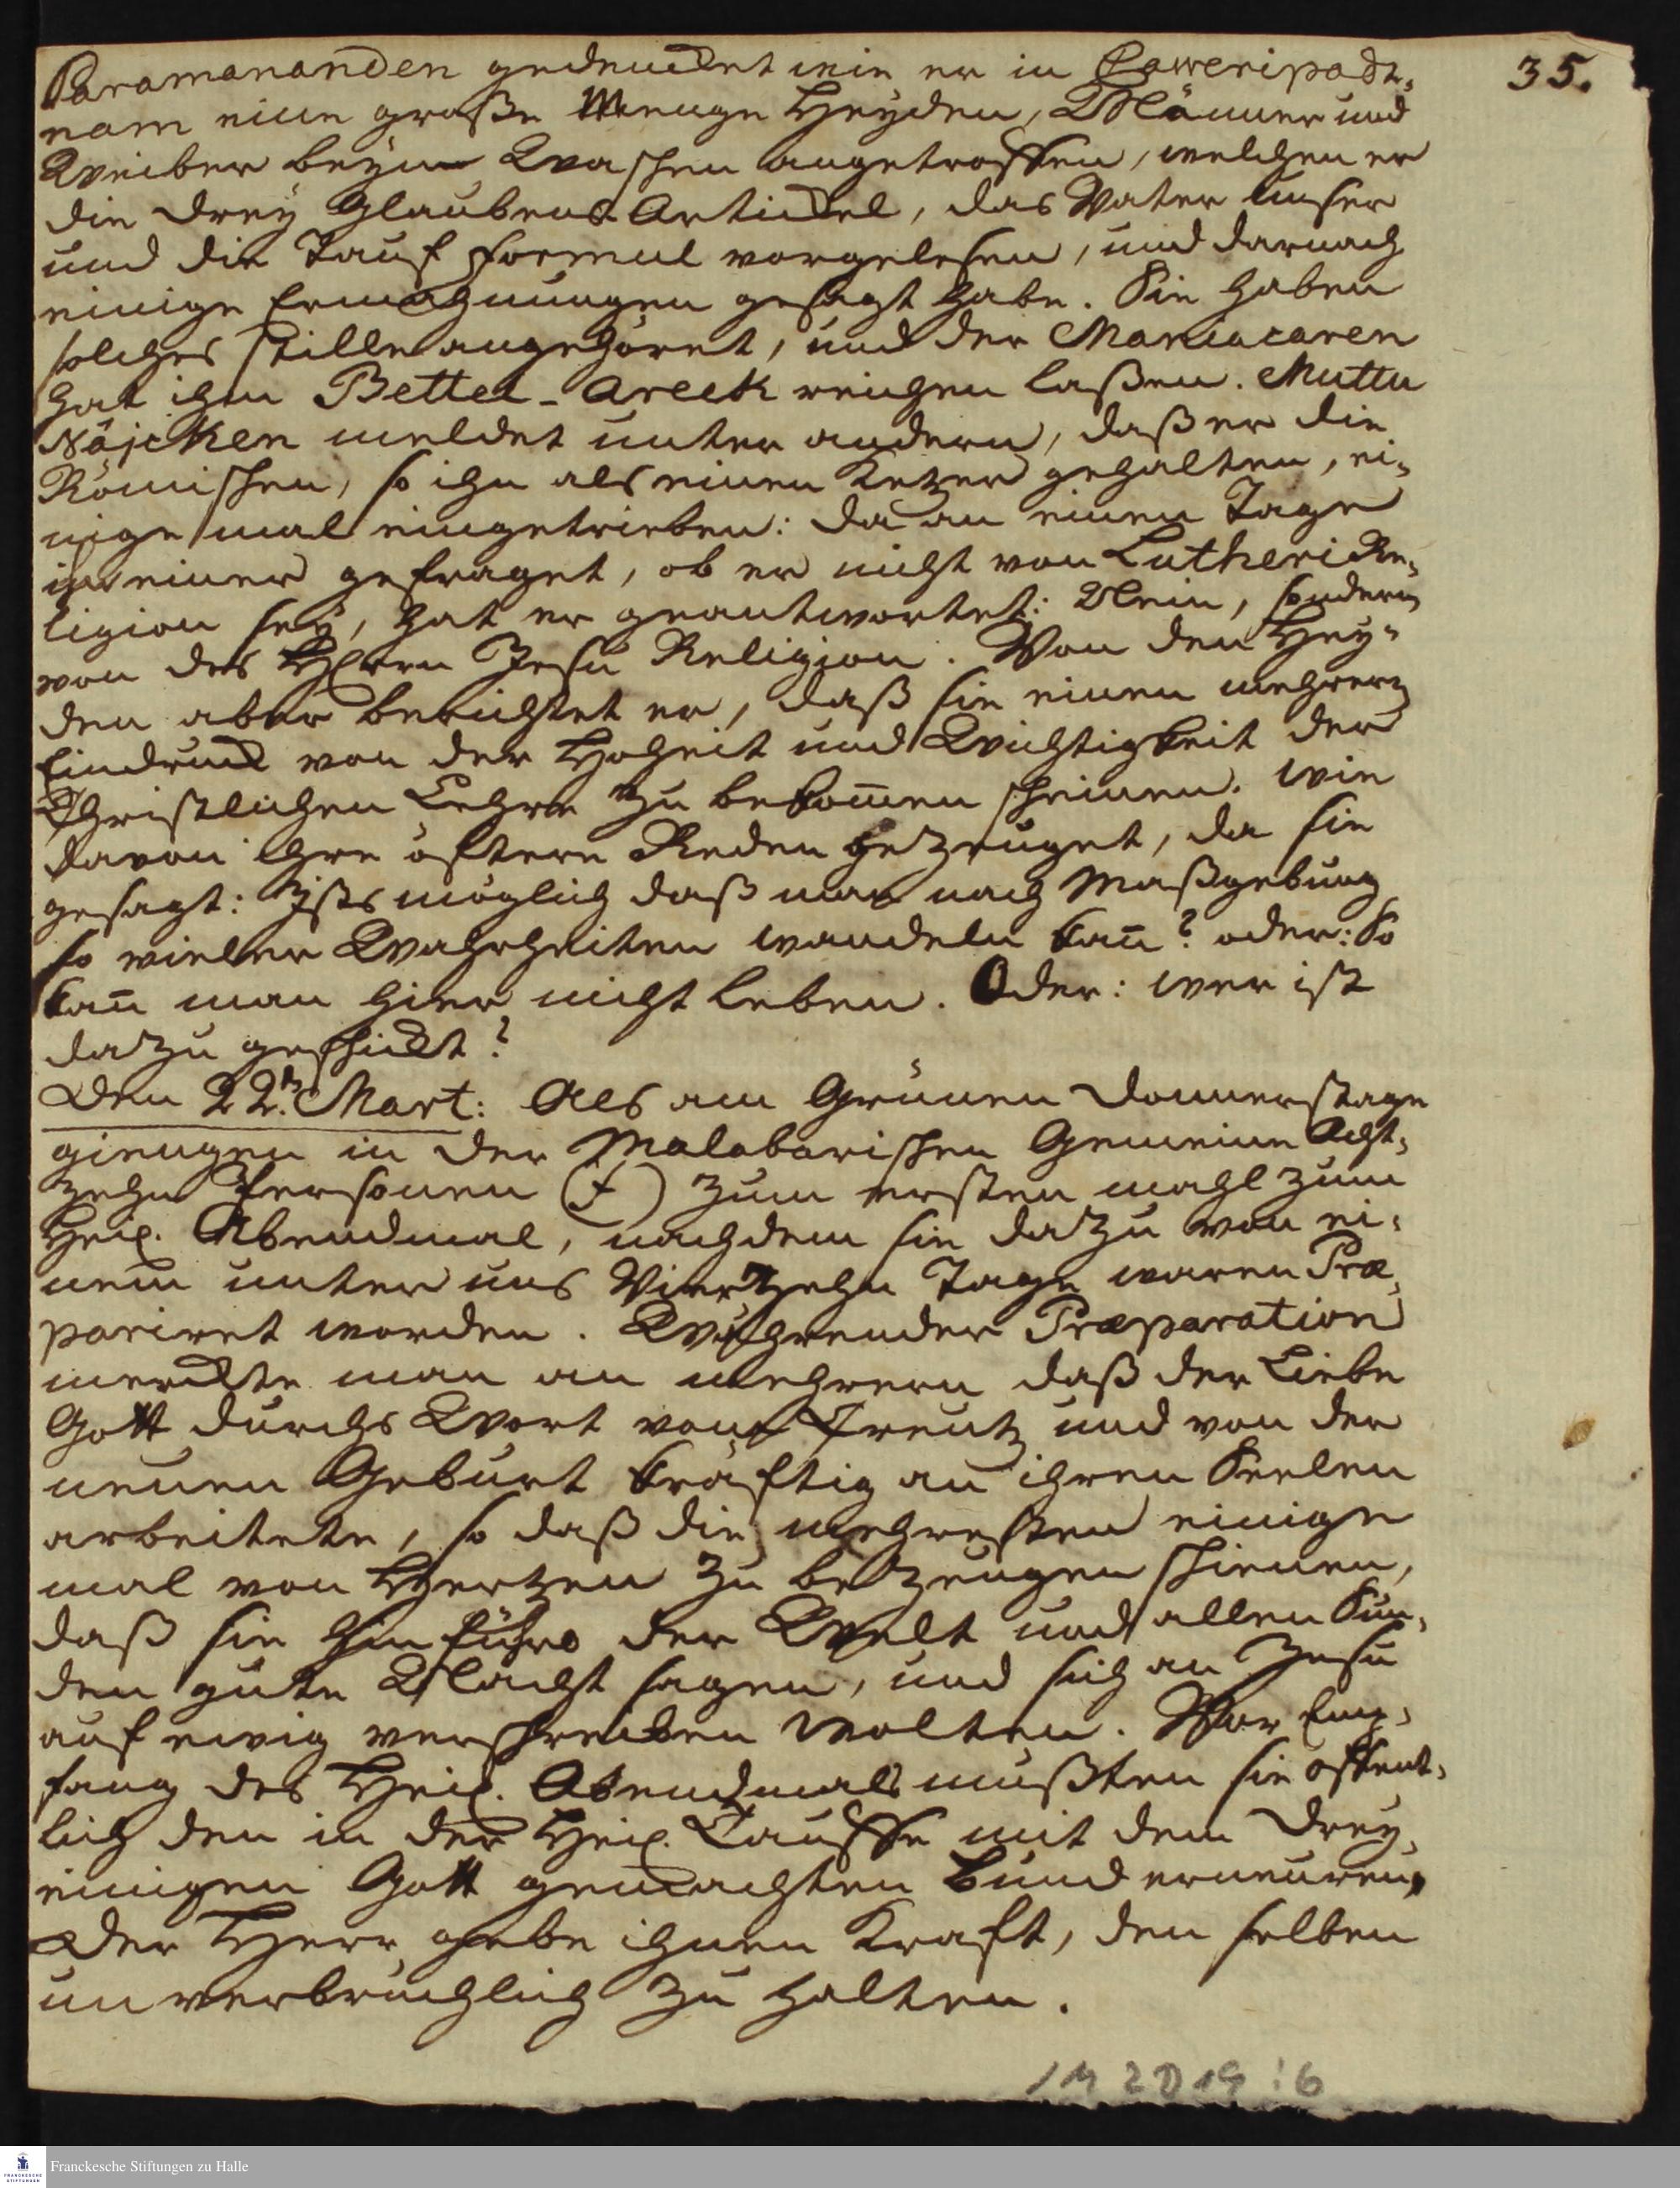 35.
Paramananden gedencket wie er in Caweripadt,
nam eine große Menge Heyden, Männer und
Weiber beym Waschen angetroffen, welchen er
die drey Glaubens Artickel, das Vater unser
und die Tauf Formul vorgelesen, und darnach
einige Ermahnungen gesagt habe. Sie haben
solches stille angehöret, und der Maniacaren
hat ihm Bettel-Areck reichen laßen. Muttu
Näjcken meldet unter andern, daß er die
Römischen, so ihn als einen Ketzer gehalten, ei,
nige mal eingetrieben: da an einem Tage
ihn einer gefraget, ob er nicht von Lutheri Re,
ligion sey, hat er geantwortet: Nein, sondern
von des HErrn Jesu Religion. Von den Hey,
den aber berichtet er, daß sie einen mehrern
Eindruck von der Hoheit und Wichtigkeit der
Christlichen Lehre zu bekom̄en scheinen. wie
davon ihre öftere Reden gezeuget, da sie
gesagt: Ists möglich daß man nach Maßgebung
so vieler Wahrheiten wandeln kan̄? oder: So
kan̄ man hier nicht leben. Oder: wer ist
dazu geschickt?
Den 22.n Mart: Als am Grünen Donnerstage
giengen in der Malabarischen Gemeine Acht,
zehn Personen (†) zum ersten mahl zum
Heil. Abendmal, nachdem sie dazu von ei,
nem unter uns Vierzehn Tage waren Præ,
pariret worden. Währender Præparation
merckte man an mehrern daß der Liebe
Gott durchs Wort vom Creutz und von der
neuen Geburt kräftig an ihren Seelen
arbeitete, so daß die mehresten einige
mal von Hertzen zu bezeugen schienen,
daß sie hinführo der Welt und allen Sün,
den gute Nacht sagen, und sich an Jesu
auf ewig verschreiben wolten. Vor Emp,
fang des Heil. Abendmals mußten sie öffent,
lich den in der Heil. Tauffe mit dem Drey,
einigen Gott gemachten Bund erneuren,
Der HErr gebe ihnen Kraft, den selben
unverbrüchlich zu halten.
1M 2D19 : 6
Franckesche Stiftungen zu Halle
FRANCKESCHE
STIFTUNGEN